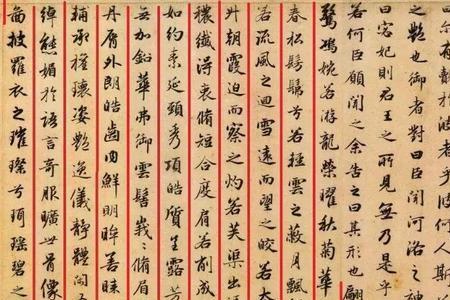 尔有覿於彼者乎彼何人斯
之艷也御者對曰臣聞河洛之神
曰宓妃則君王之所見無乃是乎
若何臣願聞之余告之曰其形也翩
驚鴻婉若游龍榮曜秋菊華
春松髣髴兮若輕雲之蔽月飄
若流風之迴雪遠而望之皎若太
升朝霞迫而察之灼若芙渠出
穠纖得衷脩短合度肩若削成
如約素延頸秀項皓質呈露芳
無加鉛華弗御雲髻峩〻脩眉
丹脣外朗皓齒内鮮明眸善睞
輔承權瓌姿艷逸儀靜體閑
綽態媚於語言奇服曠世骨像
圖披羅衣之璀璨兮珥瑤碧之